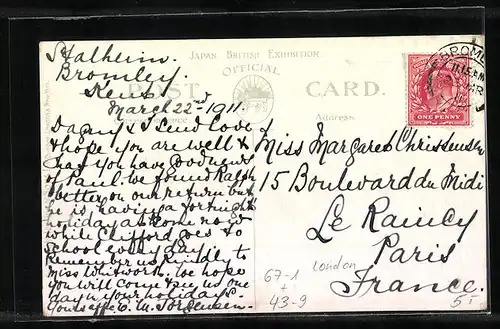 Stalheim.
Bromley.
Kent
March 22nd 1911.
Daddy & I send love
& hope you are well &
that you have good news
of Paul. We found Ralph
better on our return but
he is having a fortnights
holiday at home now
while Clifford goes to
school every day.
Remember us kindly to
Miss Whitworth. We hope
you will come & see us one
day in your holidays.
Yours aff. E. M. Jorgensen.
JAPAN BRITISH EXHIBITION
OFFICIAL
POST CARD.
Address.
ONE PENNY
BROMLEY
Miss Margaret Christensen
15 Boulevard du Midi
Le Raincy
Paris
France.
67-1
+
43-9
London
5-